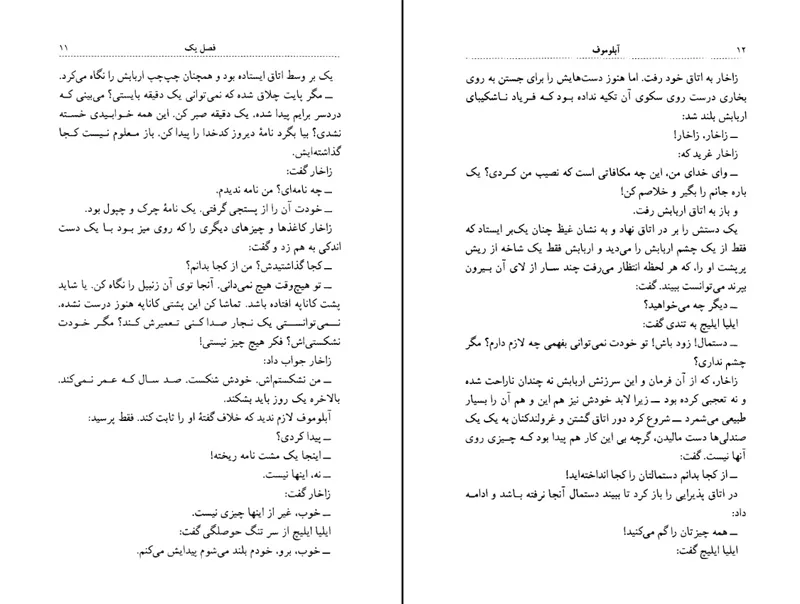 فصل یک
۱۱
یک بر وسط اتاق ایستاده بود و همچنان چپ‌چپ اربابش را نگاه می‌کرد.
ــ مگر پایت چلاق شده که نمی‌توانی یک دقیقه بایستی؟ می‌بینی که
دردسر برایم پیدا شده، یک دقیقه صبر کن. این همه خوابیدی خسته
نشدی؟ بیا بگرد نامهٔ دیروز کدخدا را پیدا کن. باز معلوم نیست کجا
گذاشته‌ایش.
زاخار گفت:
ــ چه نامه‌ای؟ من نامه ندیدم.
ــ خودت آن را از پستچی گرفتی. یک نامهٔ چرک و چپول بود.
زاخار کاغذها و چیزهای دیگری را که روی میز بود با یک دست
اندکی به هم زد و گفت:
ــ کجا گذاشتیدش؟ من از کجا بدانم؟
ــ تو هیچ‌وقت هیچ نمی‌دانی. آنجا توی آن زنبیل را نگاه کن. یا شاید
پشت کاناپه افتاده باشد. تماشا کن این پشتی کاناپه هنوز درست نشده.
نمی‌توانستی یک نجار صدا کنی تعمیرش کند؟ مگر خودت
نشکستی‌اش؟ فکر هیچ چیز نیستی!
زاخار جواب داد:
ــ من نشکستم‌اش. خودش شکست. صد سال که عمر نمی‌کند.
بالاخره یک روز باید بشکند.
آبلوموف لازم ندید که خلاف گفتهٔ او را ثابت کند. فقط پرسید:
ــ پیدا کردی؟
ــ اینجا یک مشت نامه ریخته!
ــ نه، اینها نیست.
زاخار گفت:
ــ خوب، غیر از اینها چیزی نیست.
ایلیا ایلیچ از سر تنگ حوصلگی گفت:
ــ خوب، برو، خودم بلند می‌شوم پیدایش می‌کنم.
۱۲
آبلوموف
زاخار به اتاق خود رفت. اما هنوز دست‌هایش را برای جستن به روی
بخاری درست روی سکوی آن تکیه نداده بود که فریاد ناشکیبای
اربابش بلند شد:
ــ زاخار، زاخار!
زاخار غرید که:
ــ وای خدای من، این چه مکافاتی است که نصیب من کردی؟ یک
باره جانم را بگیر و خلاصم کن!
و باز به اتاق اربابش رفت.
یک دستش را بر در اتاق نهاد و به نشان غیظ چنان یک‌بر ایستاد که
فقط از یک چشم اربابش را می‌دید و اربابش فقط یک شاخه از ریش
پرپشت او را، که هر لحظه انتظار می‌رفت چند سار از لای آن بیرون
بپرند می‌توانست ببیند. گفت:
ــ دیگر چه می‌خواهید؟
ایلیا ایلیچ به تندی گفت:
ــ دستمال! زود باش! تو خودت نمی‌توانی بفهمی چه لازم دارم؟ مگر
چشم نداری؟
زاخار، که از آن فرمان و این سرزنش اربابش نه چندان ناراحت شده
و نه تعجبی کرده بود ــ زیرا لابد خودش نیز هم این و هم آن را بسیار
طبیعی می‌شمرد ــ شروع کرد دور اتاق گشتن و غرولندکنان به یک یک
صندلی‌ها دست مالیدن، گرچه بی این کار هم پیدا بود که چیزی روی
آنها نیست. گفت:
ــ از کجا بدانم دستمالتان را کجا انداخته‌اید!
در اتاق پذیرایی را باز کرد تا ببیند دستمال آنجا نرفته باشد و ادامه
داد:
ــ همه چیزتان را گم می‌کنید!
ایلیا ایلیچ گفت: